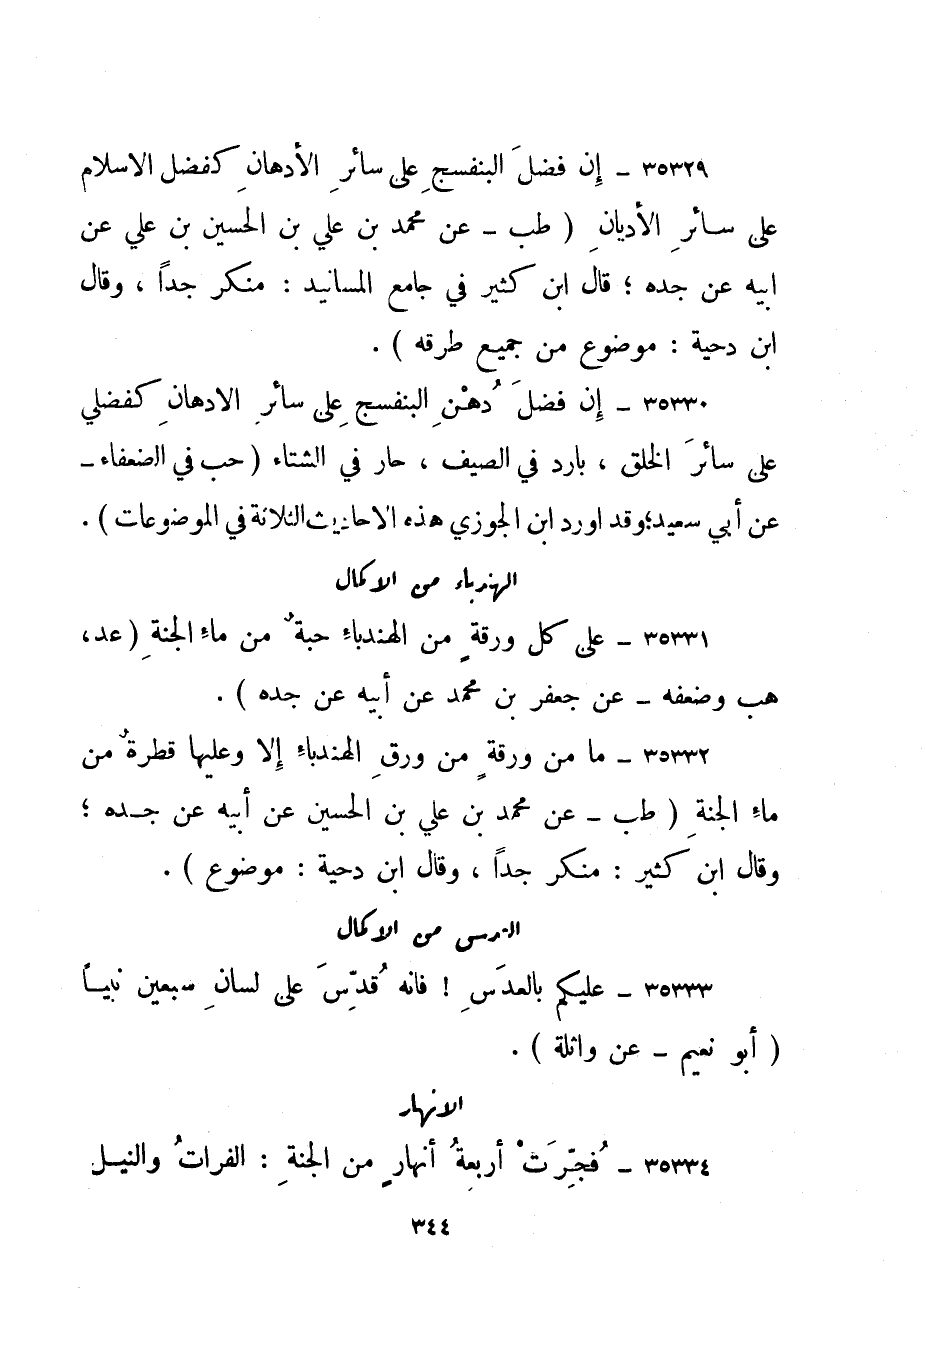 ٣٥٣٢٩ – إن فضلَ البنفسجِ على سائرِ الأدهانِ كفضل الاسلام
على سائرِ الأديانِ ( طب – عن محمد بن علي بن الحسين بن علي عن
ابيه عن جده ؛ قال ابن كثير في جامع المسانيد : منكر جداً ، وقال
ابن دحية : موضوع من جميع طرقه ) .
٣٥٣٣٠ – إن فضلَ دُهْنِ البنفسجِ على سائرِ الادهانِ كفضلي
على سائرَ الخلق ، بارد في الصيف ، حار في الشتاء ( حب في الضعفاء –
عن أبي سعيد؛وقد اورد ابن الجوزي هذه الاحاديث الثلاثة في الموضوعات ) .
الهندباء من الاكمال
٣٥٣٣١ – على كل ورقةٍ من الهندباءِ حبةٌ من ماءِ الجنةِ ( عد،
هب وضعفه – عن جعفر بن محمد عن أبيه عن جده ) .
٣٥٣٣٢ – ما من ورقةٍ من ورقِ الهندباءِ إلا وعليها قطرةٌ من
ماءِ الجنةِ ( طب – عن محمد بن علي بن الحسين عن أبيه عن جده ؛
وقال ابن كثير : منكر جداً ، وقال ابن دحية : موضوع ) .
العدس من الاكمال
٣٥٣٣٣ – عليكم بالعدَسِ ! فانه قُدّسَ على لسانِ سبعين نبياً
( أبو نعيم – عن واثلة ) .
الانهار
٣٥٣٣٤ – فُجّرَتْ أربعةُ أنهارٍ من الجنةِ : الفراتُ والنيل
٣٤٤